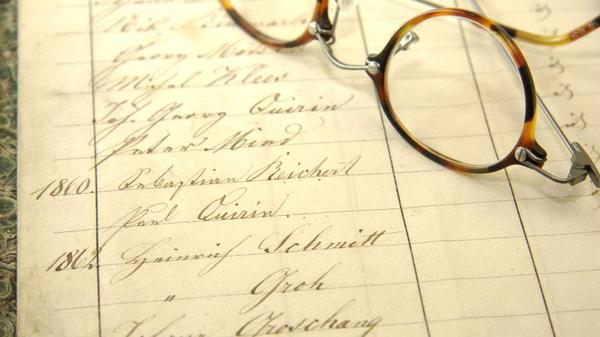 Georg Moos
Michel Klees
Joh. Georg Quirin
Peter Mind
1860. Sebastian Reichert
Paul Quirin.
1862. Heinrich Schmitt
" Groh
Groschang